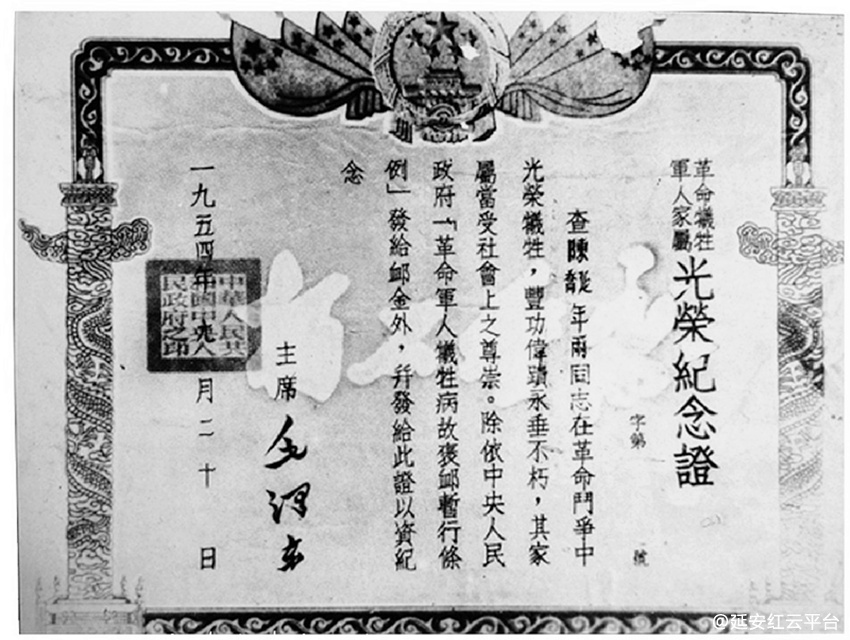 革命犧牲
軍人家屬
光榮紀念證
字第 號
查陳延喬年兩同志在革命鬥爭中
光榮犧牲,豐功偉蹟永垂不朽,其家
屬當受社會上之尊崇。除依中央人民
政府「革命軍人犧牲病故褒卹暫行條
例」發給卹金外,幷發給此證以資紀
念
主席 毛澤東
一九五四年 月二十日
中華人民共
和國中央人
民政府之印
@延安红云平台